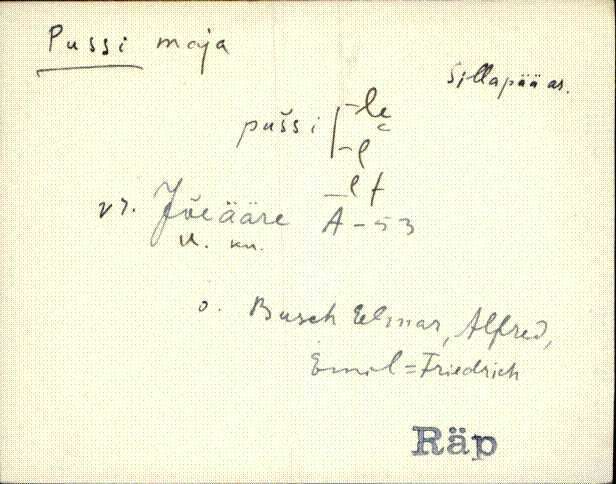 Pussi maja
Sillapää as.
pušsi
-le
-l
-lt
vr. Jõeääre A-53
u. kn.
o. Busch Elmar, Alfred,
Emil=Friedrich
Räp